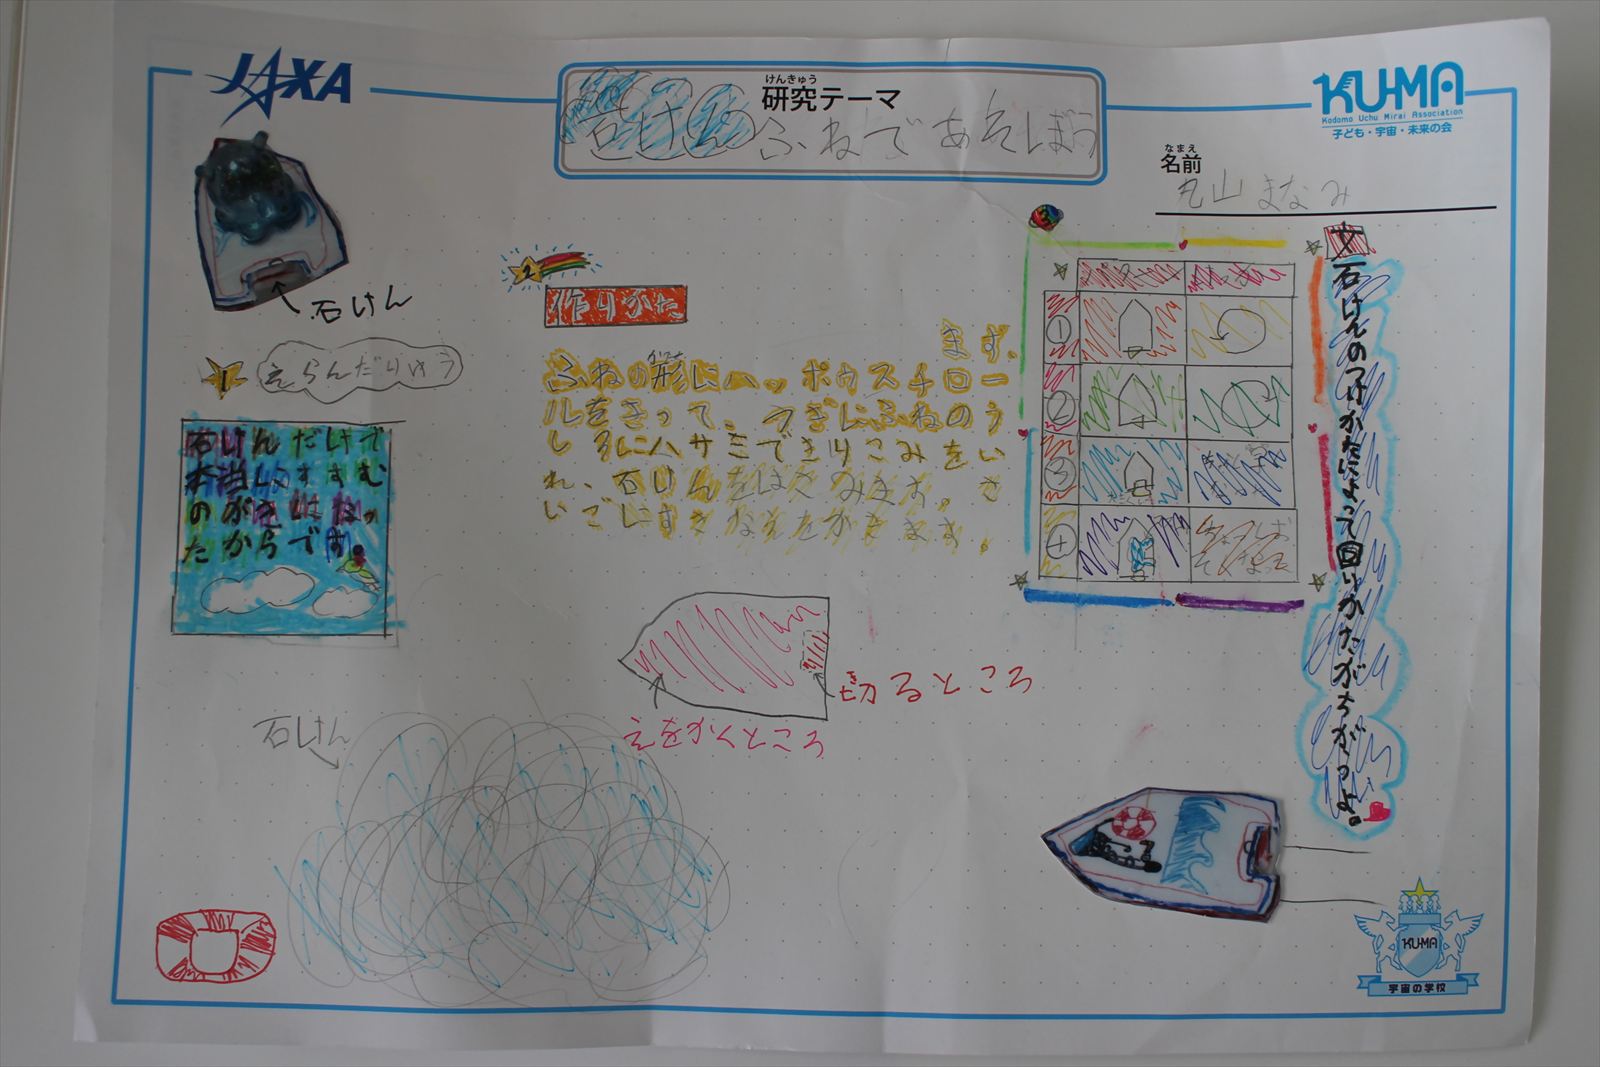 JAXA
けんきゅう
研究テーマ
石けんふねであそぼう
KU-MA
Kodomo Uchu Mirai Association
子ども・宇宙・未来の会
なまえ
名前
丸山 まなみ
石けん
1
えらんだりゆう
石けんだけで
本当にすすむ
のか気になっ
たからです
2
作りかた
まず、
ふねの形にハッポウスチロー
ルをきって、つぎにふねのう
しろにハサミできりこみをい
れ、石けんをはさみます。さ
いごにすきなえをかきます。
切るところ
えをかくところ
石けん
①
②
③
石けんのつけかたによって回りかたがちがうよ。
KU-MA
宇宙の学校